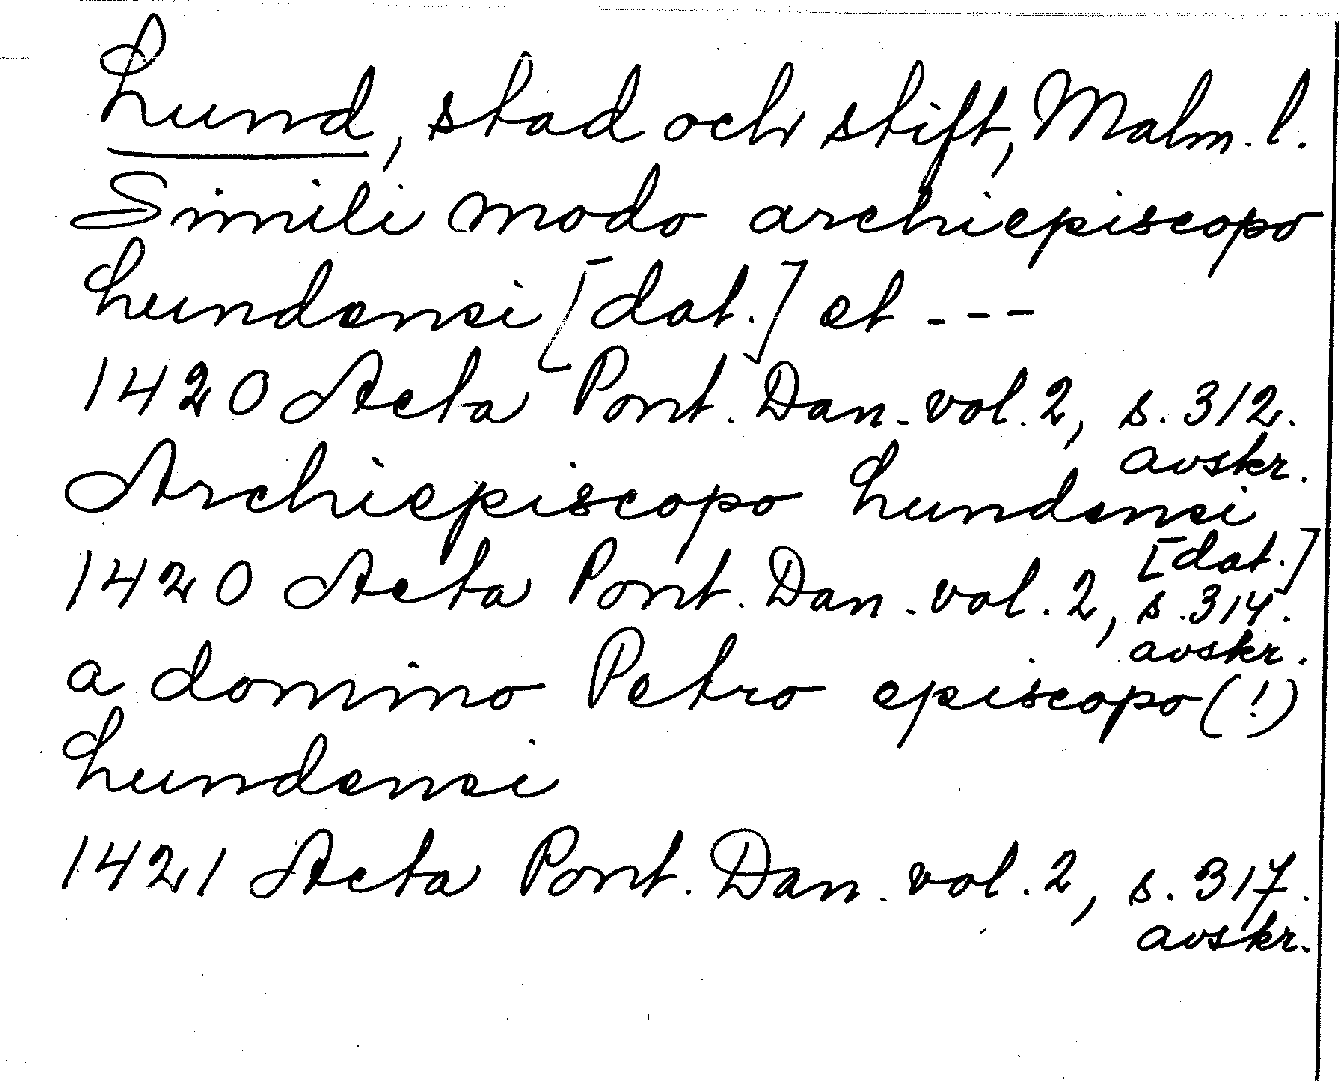 Lund, stad och stift, Malm. l.
Simili modo archiepiscopo
Lundensi [dat.] et ---
1420 Acta Pont. Dan. vol. 2, s. 312.
avskr.
Archiepiscopo Lundensi
[dat.]
1420 Acta Pont. Dan. vol. 2, s. 314.
avskr.
a domino Petro episcopo (!)
Lundensi
1421 Acta Pont. Dan. vol. 2, s. 317.
avskr.